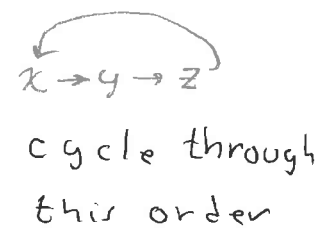 x → y → z
cycle through
this order